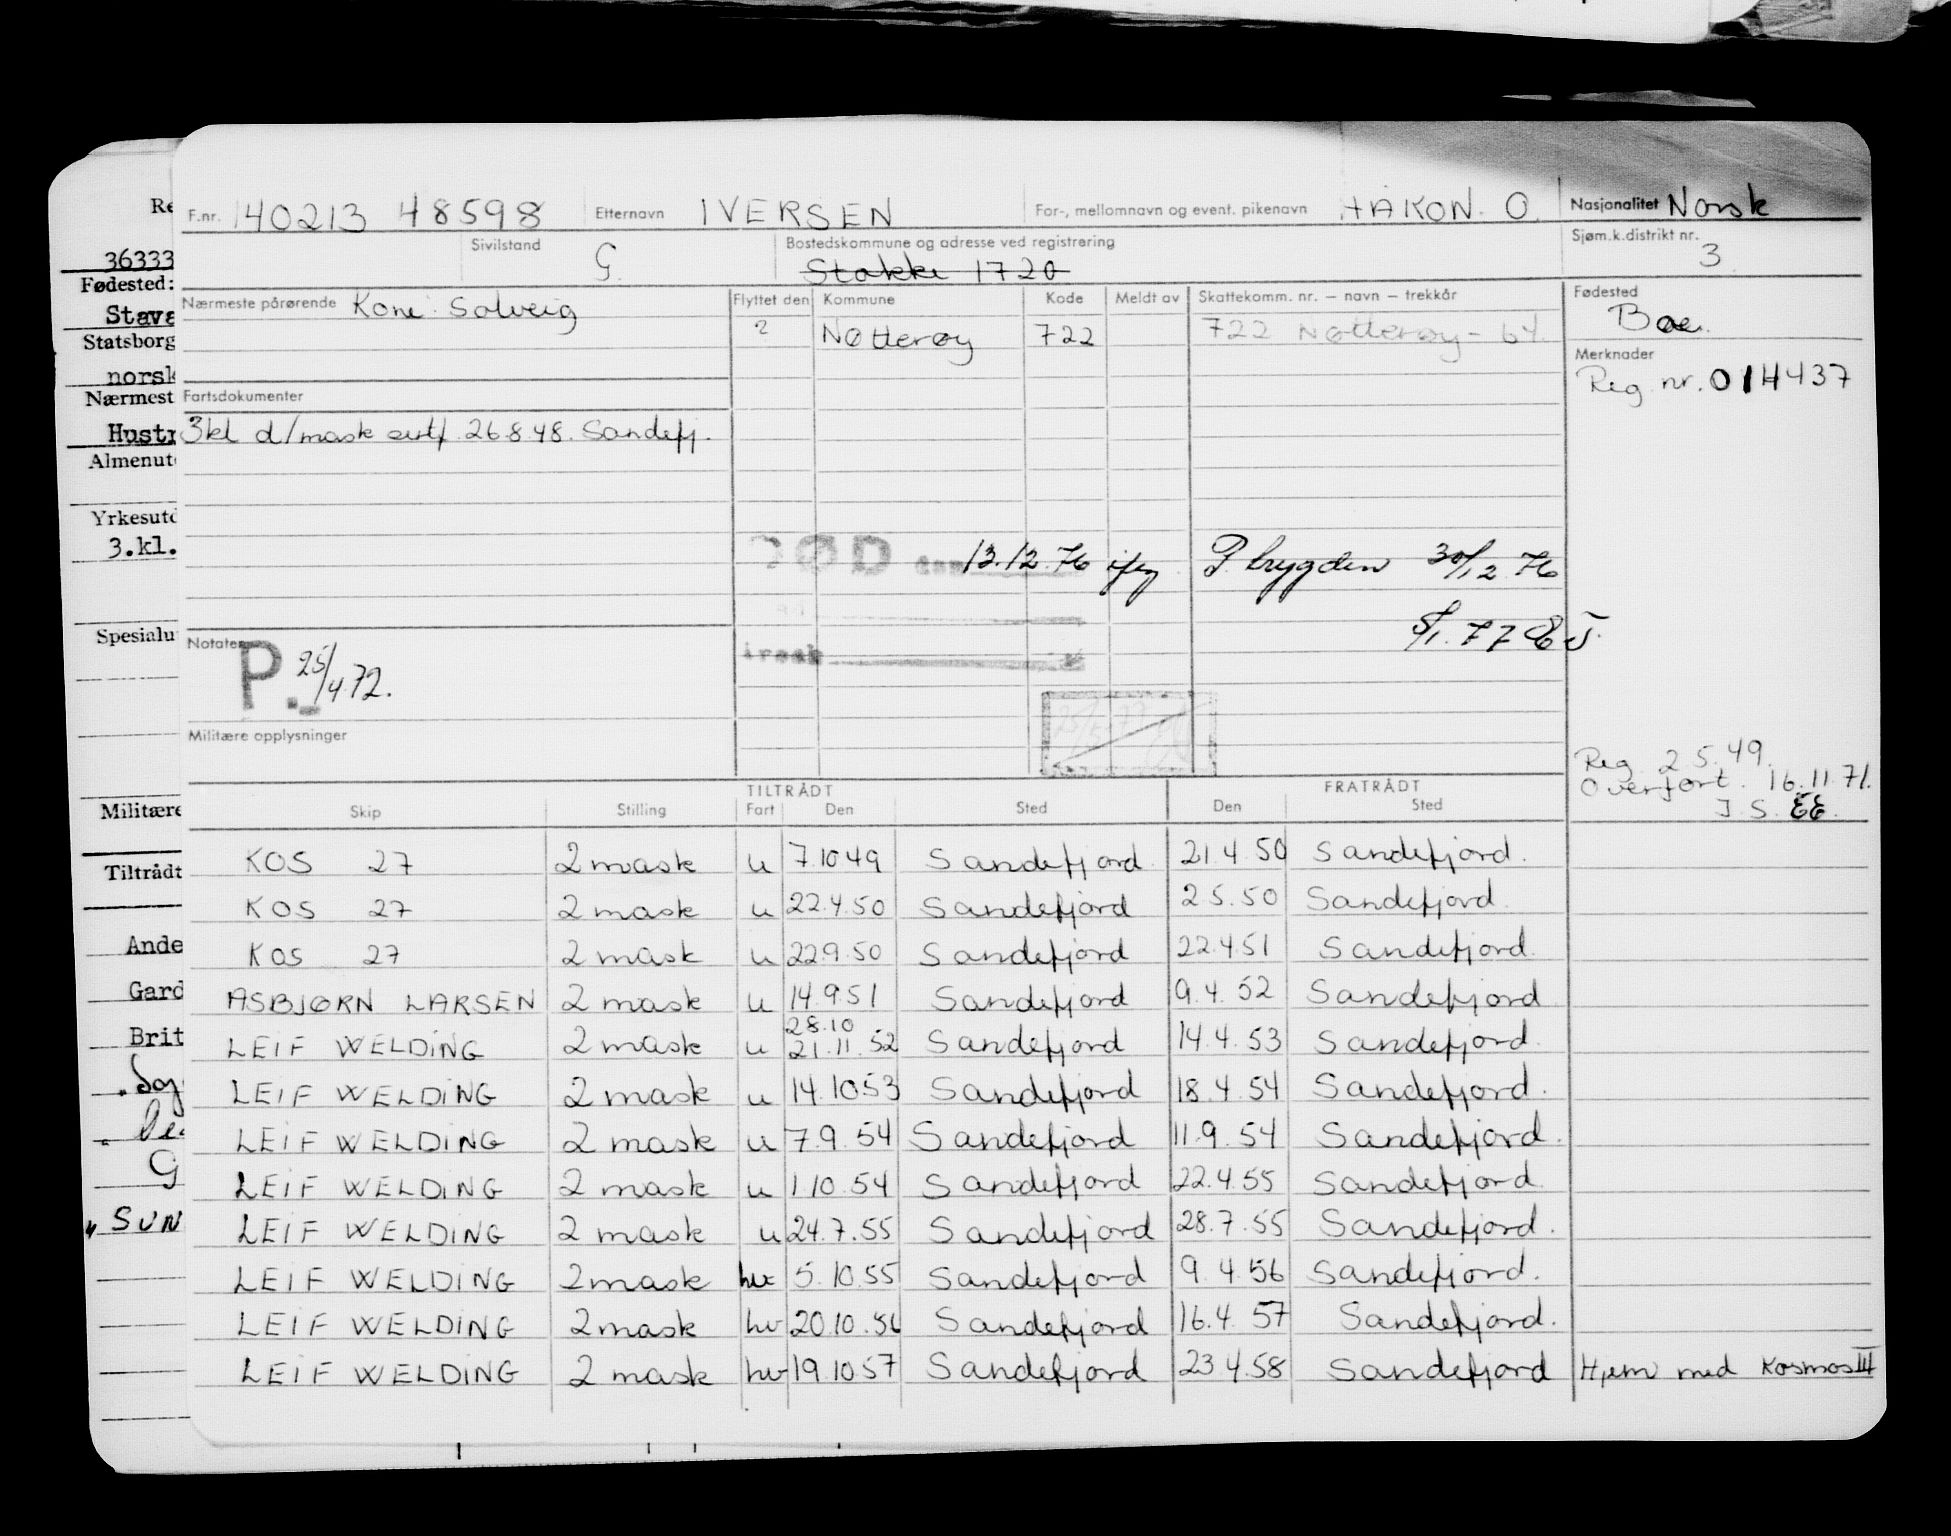 F.nr. 140213 48598 Etternavn IVERSEN For-, mellomnavn og event. pikenavn HÅKON. O. Nasjonalitet Norsk
Sivilstand G. Bostedskommune og adresse ved registrering Stokke 1720 Sjøm.k.distrikt nr. 3
Nærmeste pårørende Kone: Solveig Flyttet den Kommune Kode Meldt av Skattekomm. nr. — navn — trekkår Fødested
? Nøtterøy 722 722 Nøtterøy - 64. Boe.
Merknader
Reg. nr. 014437
Fartsdokumenter
3kl d/mask sertf. 26.8.48. Sandefj.
DØD den 13.12.76 P. brygden 30/12 76
5/1. 77
Notater
P. 25/4.72.
Militære opplysninger
Reg. 2.5.49.
Overført. 16.11.71.
J. S. EE.
TILTRÅDT FRATRÅDT
Skip Stilling Fart Den Sted Den Sted
KOS 27 2 mask u 7.10 49 Sandefjord. 21.4.50 Sandefjord.
KOS 27 2 mask u 22.4.50 Sandefjord 2.5.50 Sandefjord.
KOS 27 2 mask u 22.9.50 Sandefjord 22.4.51 Sandefjord.
ASBJØRN LARSEN 2 mask u 14.9.51 Sandefjord 9.4.52 Sandefjord
28.10
LEIF WELDING 2 mask u 21.11.52 Sandefjord 14.4.53 Sandefjord.
LEIF WELDING 2 mask u 14.10 53 Sandefjord 18.4.54 Sandefjord.
LEIF WELDING 2 mask u 7.9.54 Sandefjord 11.9.54 Sandefjord.
LEIF WELDING 2 mask u 1.10.54 Sandefjord 22.4.55 Sandefjord.
LEIF WELDING 2 mask u 24.7.55 Sandefjord 28.7.55 Sandefjord.
LEIF WELDING 2 mask hv 5.10.55 Sandefjord 9.4.56 Sandefjord.
LEIF WELDING 2 mask hv 20.10.56 Sandefjord 16.4.57 Sandefjord.
LEIF WELDING 2 mask hv 19.10 57 Sandefjord 23.4.58 Sandefjord Hjem med Kosmos III
Re
36333
Fødested:
Stava
Statsborg
norsk
Nærmest
Hustr
Almenut
Yrkesutd
3.kl.
Spesialu
Militære
Tiltrådt
Ande
Gard
Brit
G
" SUN